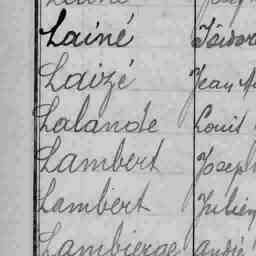 Lainé Isidor
Laizé Jean
Lalande Louis
Lambert Joseph
Lambert Julien
Lambierge André